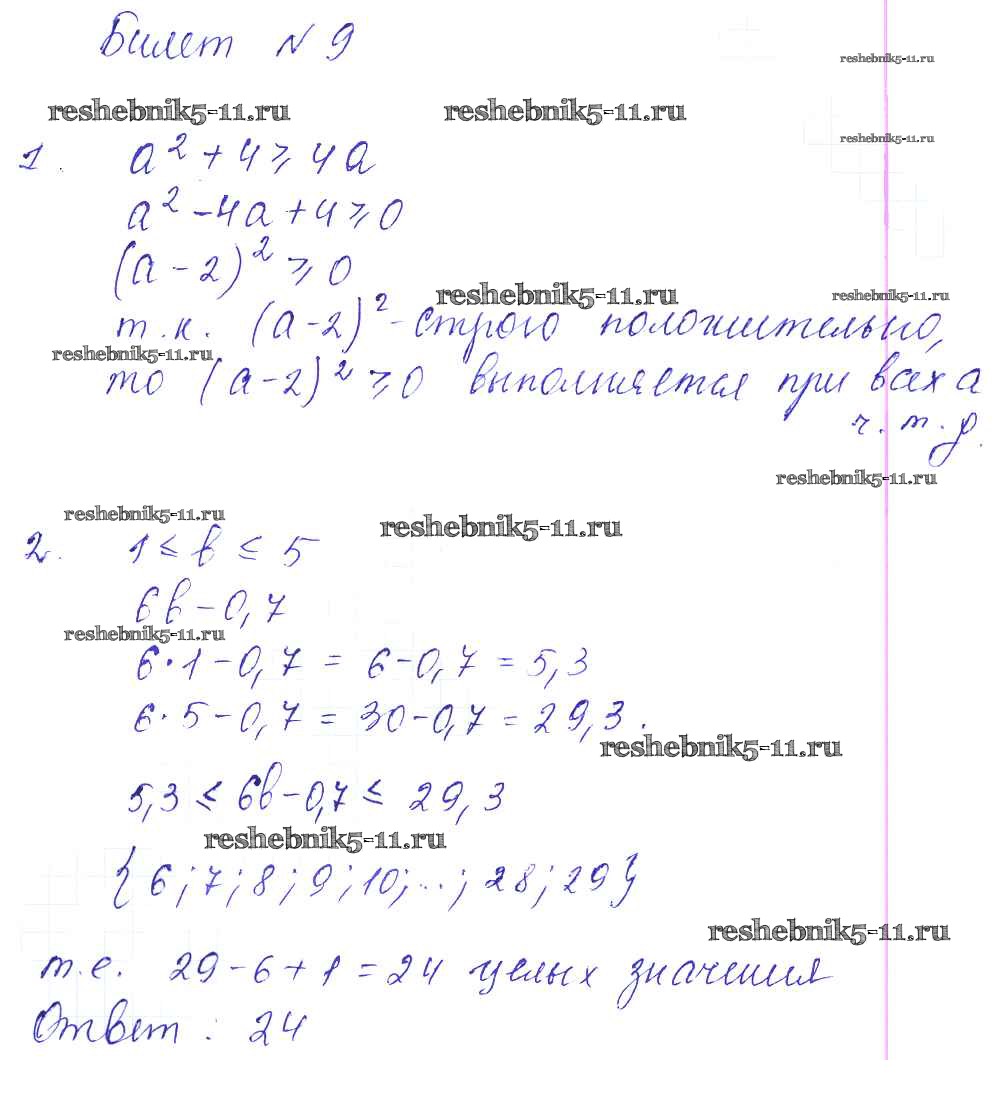 Билет № 9
reshebnik5-11.ru
reshebnik5-11.ru
reshebnik5-11.ru
reshebnik5-11.ru
1. a² + 4 ≥ 4a
a² - 4a + 4 ≥ 0
(a - 2)² ≥ 0
reshebnik5-11.ru
reshebnik5-11.ru
т.к. (a-2)² - строго положительно,
reshebnik5-11.ru
то (a-2)² ≥ 0 выполняется при всех a
ч.т.д.
reshebnik5-11.ru
reshebnik5-11.ru
reshebnik5-11.ru
2. 1 ≤ b ≤ 5
6b - 0,7
reshebnik5-11.ru
6·1 - 0,7 = 6 - 0,7 = 5,3
6·5 - 0,7 = 30 - 0,7 = 29,3.
reshebnik5-11.ru
5,3 ≤ 6b - 0,7 ≤ 29,3
reshebnik5-11.ru
{6; 7; 8; 9; 10; ...; 28; 29}
reshebnik5-11.ru
т.е. 29 - 6 + 1 = 24 целых значения
Ответ: 24